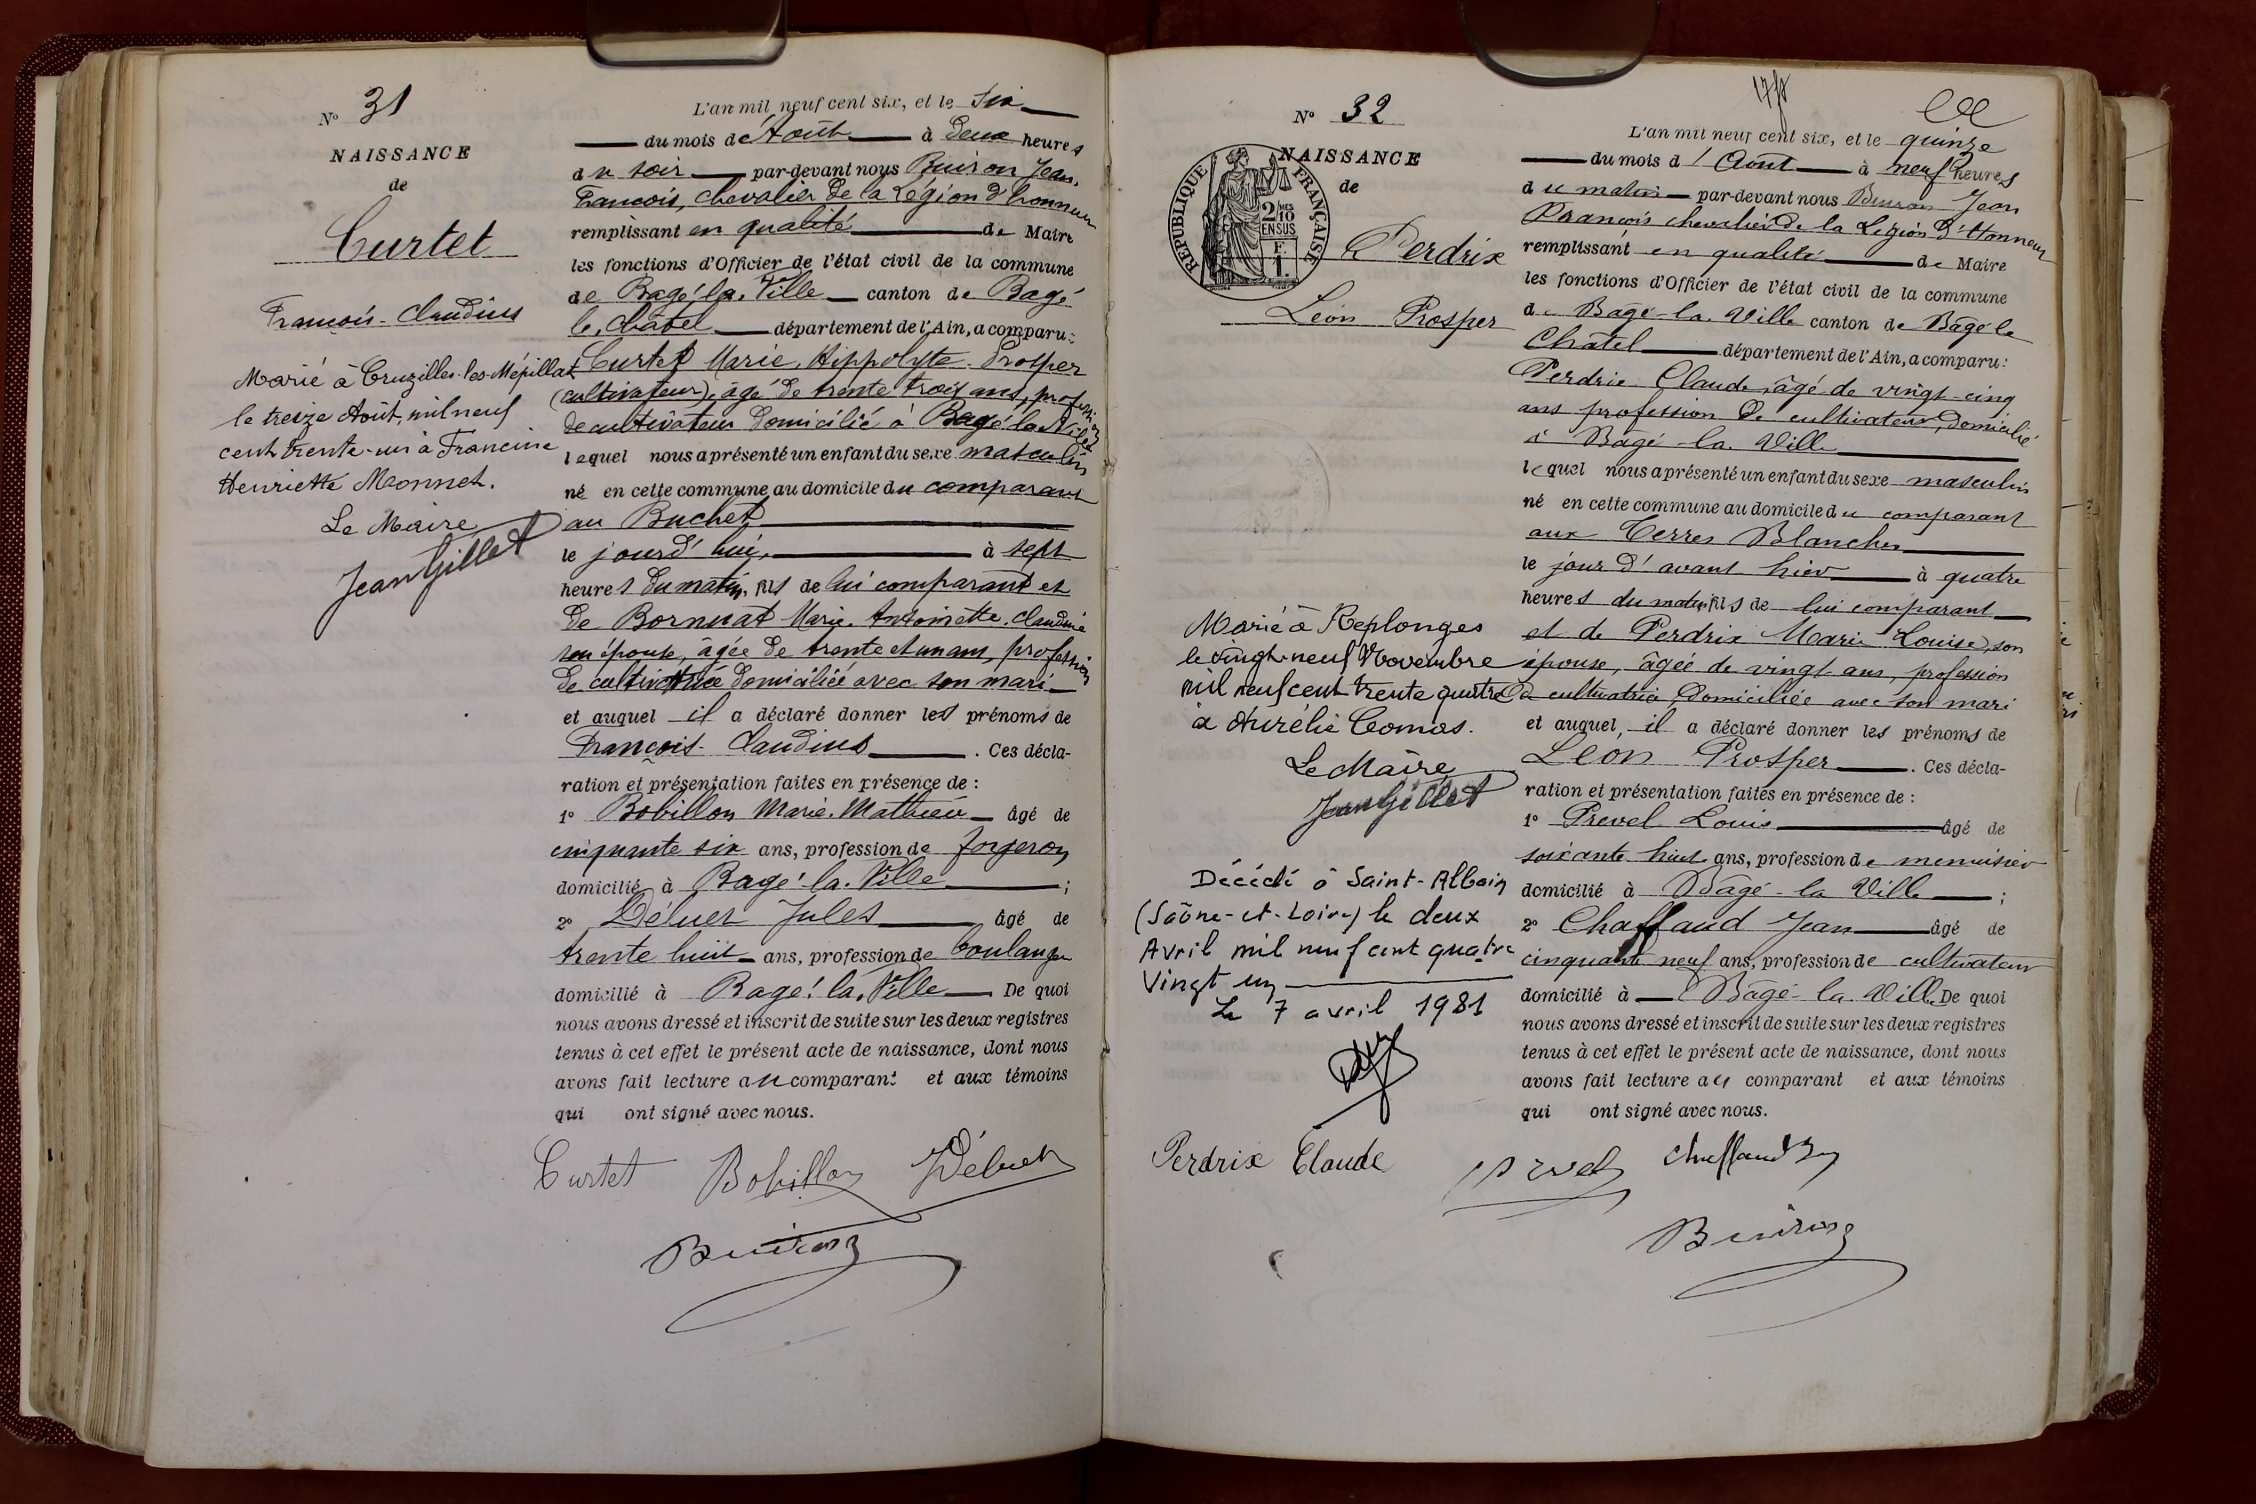 N° 31
NAISSANCE
de
Curtet
François-Claudius
Marié à Cruzilles-les-Mépillat
le treize Août, mil neuf
cent trente-un à Francine
Henriette Monnet.
Le Maire
Jean Gillet
L'an mil neuf cent six, et le Six
du mois d'Août à deux heures
du soir par-devant nous Buiron Jean
François, chevalier de la Légion d'honneur
remplissant en qualité de Maire
les fonctions d'Officier de l'état civil de la commune
de Bagé-la-Ville canton de Bagé
le Châtel département de l'Ain, a comparu:
Curtet Marie, Hippolyte-Prosper
(cultivateur), âgé de trente trois ans, profession
de cultivateur domicilié à Bagé-la-Ville
lequel nous a présenté un enfant du sexe masculin
né en cette commune au domicile du comparant
au Buchet
le jourd'hui, à sept
heures du matin, fils de lui comparant et
de Bornuat Marie-Antoinette-Claudine
son épouse, âgée de trente et un ans, profession
de cultivatrice domiciliée avec son mari
et auquel il a déclaré donner les prénoms de
François-Claudius . Ces décla-
ration et présentation faites en présence de :
1° Bobillon Marie-Mathieu âgé de
cinquante six ans, profession de forgeron
domicilié à Bagé-la-Ville ;
2° Déluer Jules âgé de
trente huit ans, profession de boulanger
domicilié à Bagé-la-Ville De quoi
nous avons dressé et inscrit de suite sur les deux registres
tenus à cet effet le présent acte de naissance, dont nous
avons fait lecture au comparant et aux témoins
qui ont signé avec nous.
Curtet Bobillon Déluer
Buiron
N° 32
NAISSANCE
de
RÉPUBLIQUE FRANÇAISE
2/10
EN SUS
Perdrix
Léon Prosper
Marié à Replonges
le vingt-neuf Novembre
mil neuf cent trente quatre
à Aurélie Comas.
Le Maire
Jean Gillet
Décédé à Saint-Albain
(Saône-et-Loire) le deux
Avril mil neuf cent quatre
Vingt un
Le 7 avril 1981
L'an mil neuf cent six, et le quinze
du mois d'Août à neuf heures
du matin par-devant nous Buiron Jean
François chevalier de la Légion d'Honneur
remplissant en qualité de Maire
les fonctions d'Officier de l'état civil de la commune
de Bagé-la-Ville canton de Bâgé le
Châtel département de l'Ain, a comparu:
Perdrix Claude, âgé de vingt-cinq
ans profession de cultivateur, domicilié
à Bâgé-la-Ville
lequel nous a présenté un enfant du sexe masculin
né en cette commune au domicile du comparant
aux Terres Blanches
le jour d'avant hier à quatre
heures du matin fils de lui comparant
et de Perdrix Marie Louise, son
épouse, âgée de vingt ans, profession
de cultivatrice, domiciliée avec son mari
et auquel, il a déclaré donner les prénoms de
Léon Prosper . Ces décla-
ration et présentation faites en présence de :
1° Prevel Louis âgé de
soixante huit ans, profession de menuisier
domicilié à Bâgé-la Ville ;
2° Chaffaud Jean âgé de
cinquante neuf ans, profession de cultivateur
domicilié à Bâgé-la-Ville De quoi
nous avons dressé et inscrit de suite sur les deux registres
tenus à cet effet le présent acte de naissance, dont nous
avons fait lecture au comparant et aux témoins
qui ont signé avec nous.
Perdrix Claude Prevel Chaffaud
Buiron